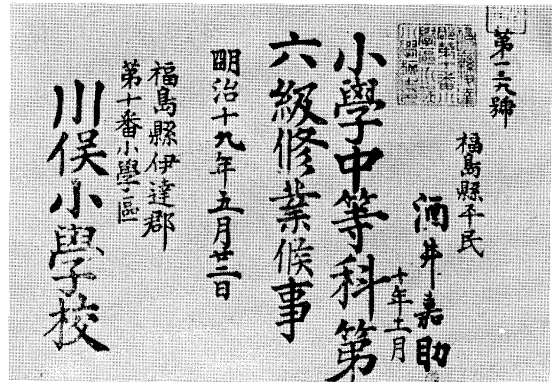 第一三九號
福島縣平民
酒井嘉助
十年十一月
小學中等科第
六級修業候事
明治十九年五月廿二日
福島縣伊達郡
第十番小學區
川俣小學校